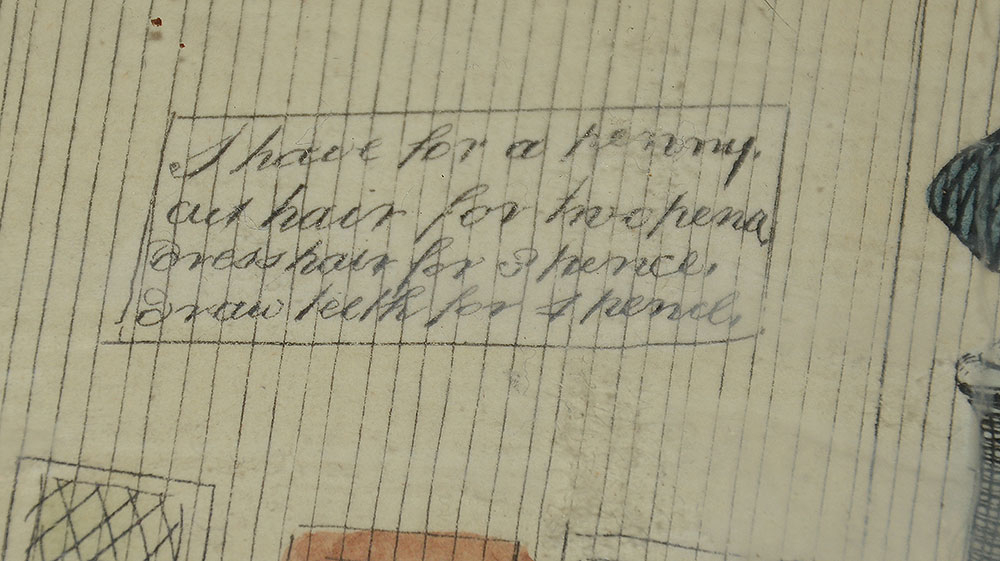 I have for a penny.
cut hair for two pence
Dress hair for 3 pence.
Draw teeth for 4 pence.